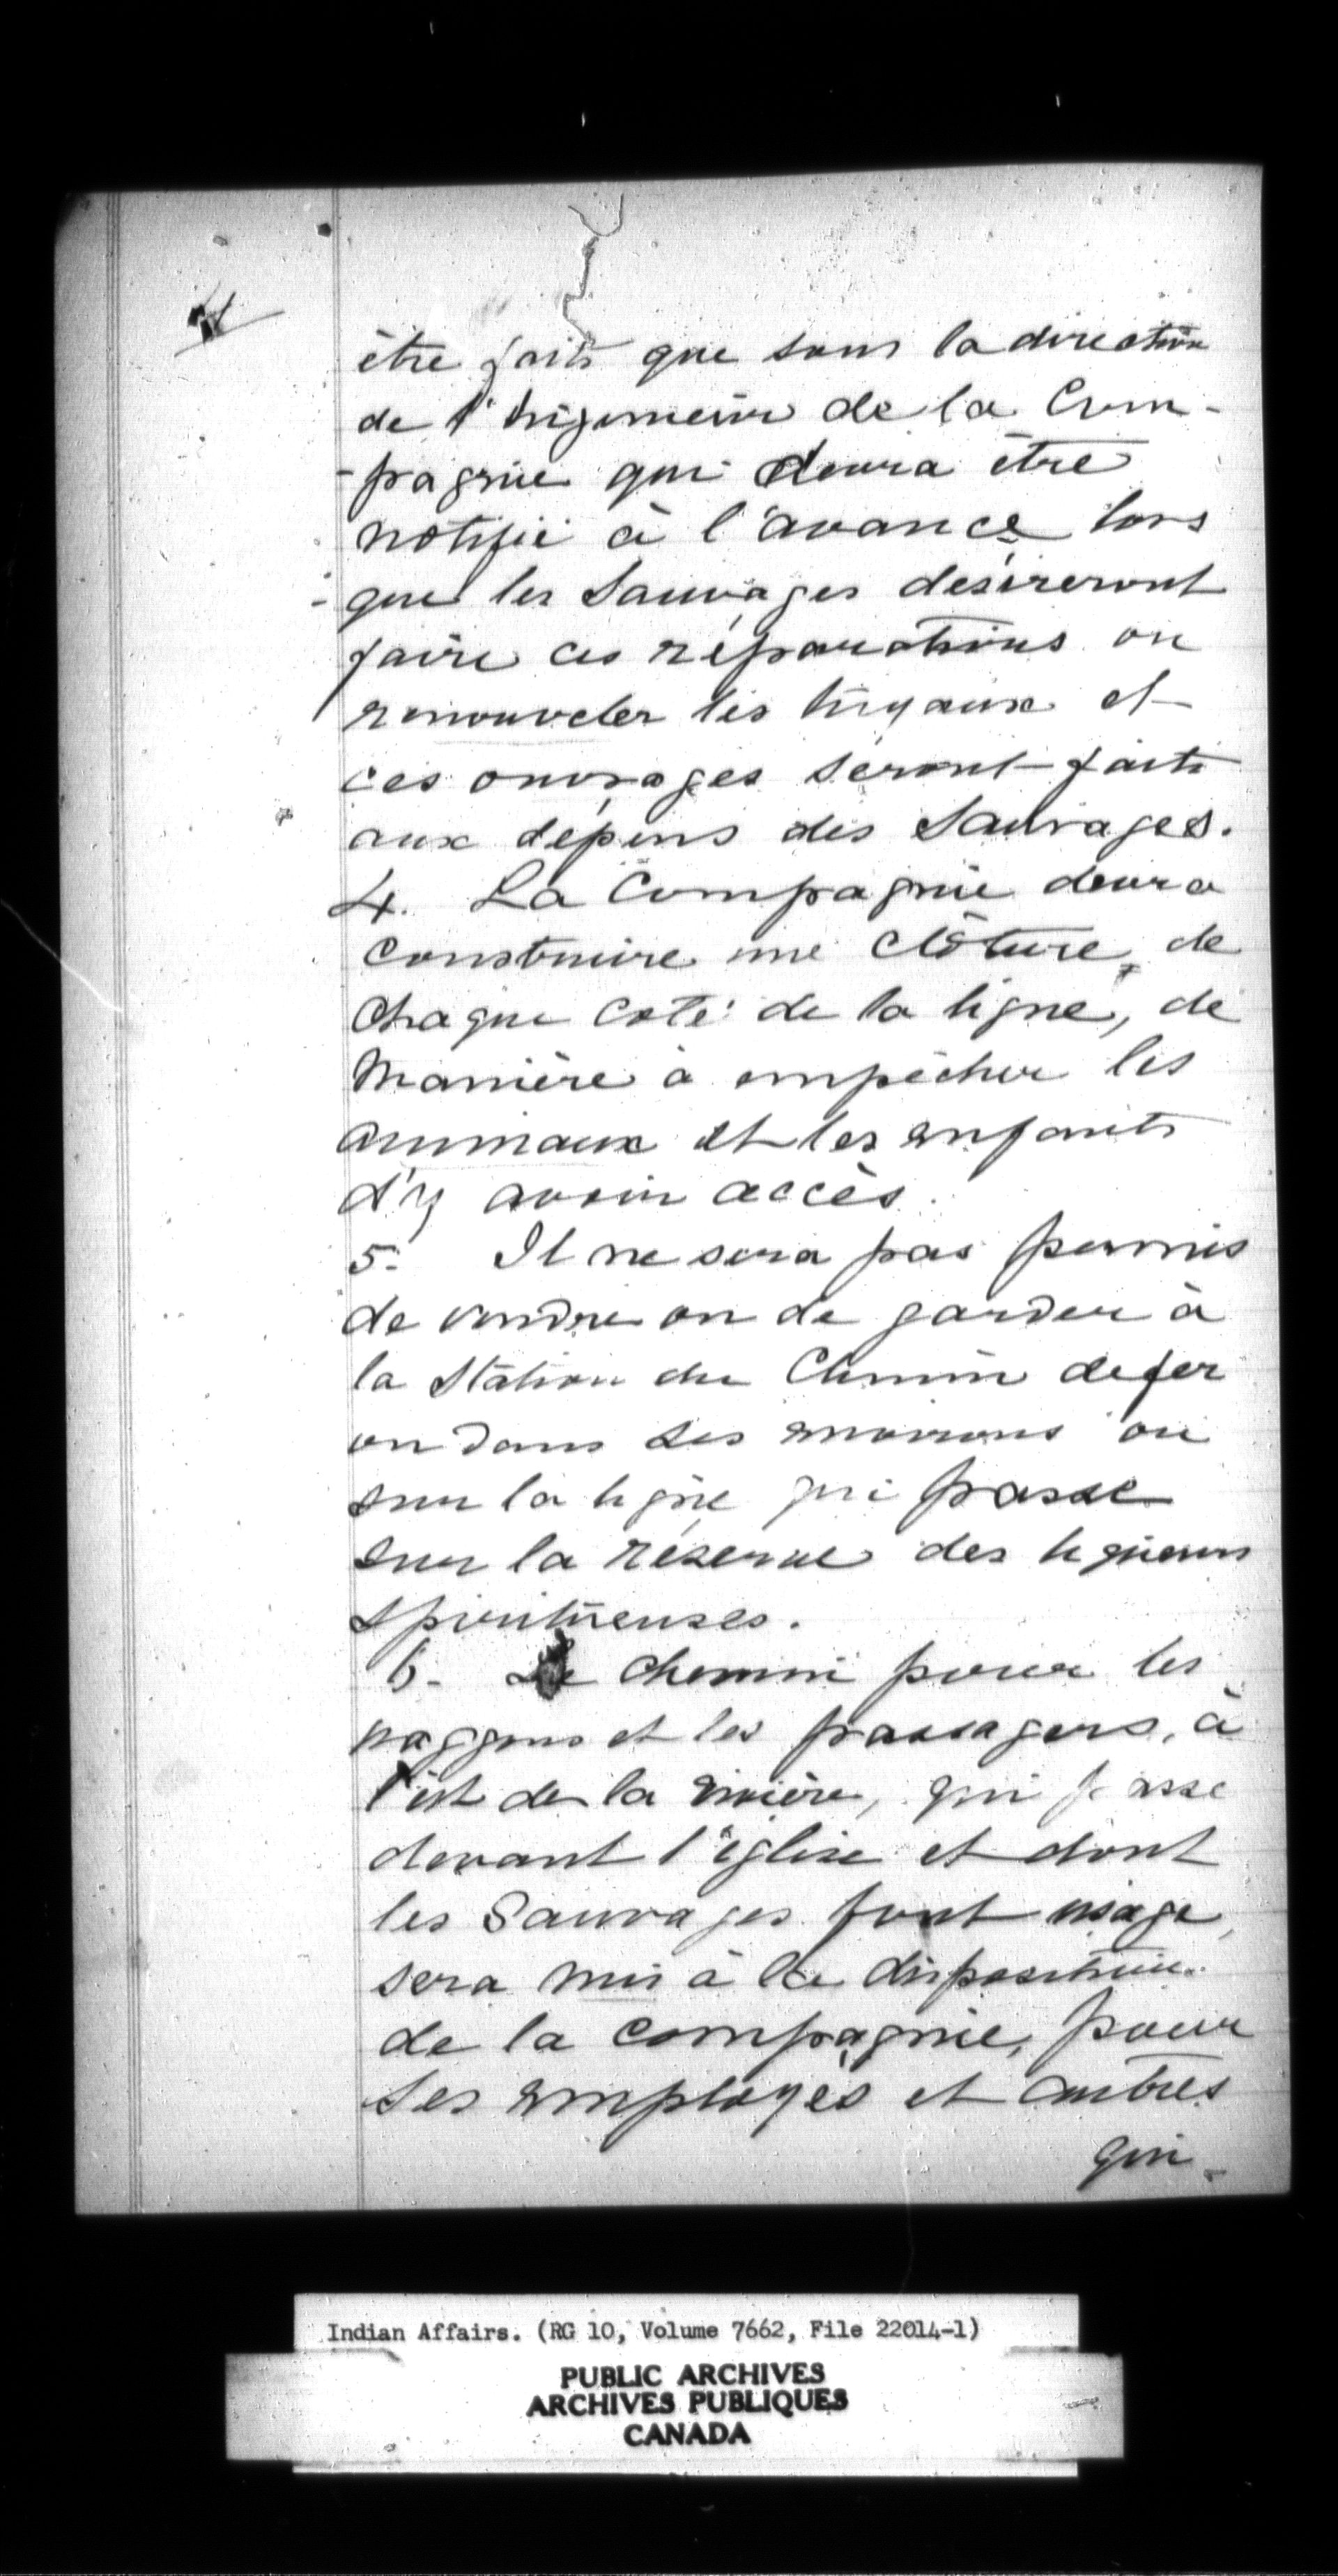 être faits que sous la direction
de l'Ingénieur de la Com-
-pagnie qui devra être
notifié à l'avance lors
-que les Sauvages désireront
faire ces réparations ou
renouveler les tuyaux et
ces ouvrages seront faits
aux dépens des Sauvages.
4. La Compagnie devra
construire une clôture, de
chaque coté de la ligne, de
manière à empêcher les
animaux et les enfants
d'y avoir accès.
5. Il ne sera pas permis
de vendre ou de garder à
la Station du Chemin de fer
ou dans ses environs ou
sur la ligne qui passe
sur la réserve des liqueurs
spiritueuses.
6. Le chemin pour les
waggons et les passagers, à
l'est de la rivière, qui passe
devant l'église et dont
les Sauvages font usage,
sera mis à la disposition
de la compagnie, pour
ses employés et autres
qui
Indian Affairs. (RG 10, Volume 7662, File 22014-1)
PUBLIC ARCHIVES
ARCHIVES PUBLIQUES
CANADA